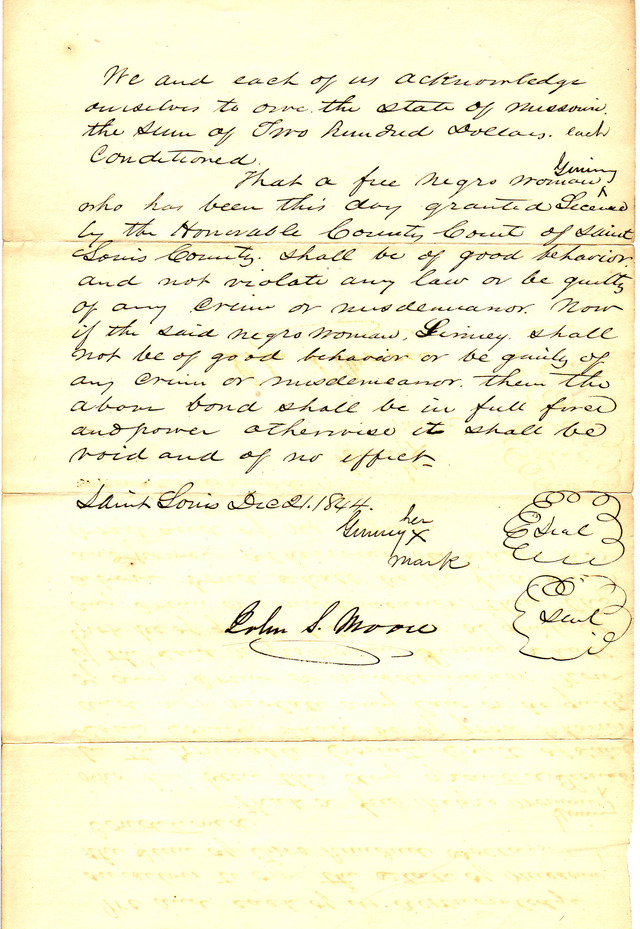 We and each of us acknowledge
ourselves to owe the state of Missouri.
the sum of Two Hundred Dollars. each
Conditioned.
That a free negro woman ^ Ginney
who has been this day granted License
by the Honorable County Court of Saint
Louis County. shall be of good behavior
and not violate any law or be guilty
of any crime or misdemeanor. Now
if the said negro woman, Ginney. shall
not be of good behavior or be guilty of
any crime or misdemeanor. then the
above bond shall be in full force
and power otherwise it shall be
void and of no effect-
Saint Louis Dec 21. 1844.
her
Ginney X
mark
Seal
John S. Moore
Seal